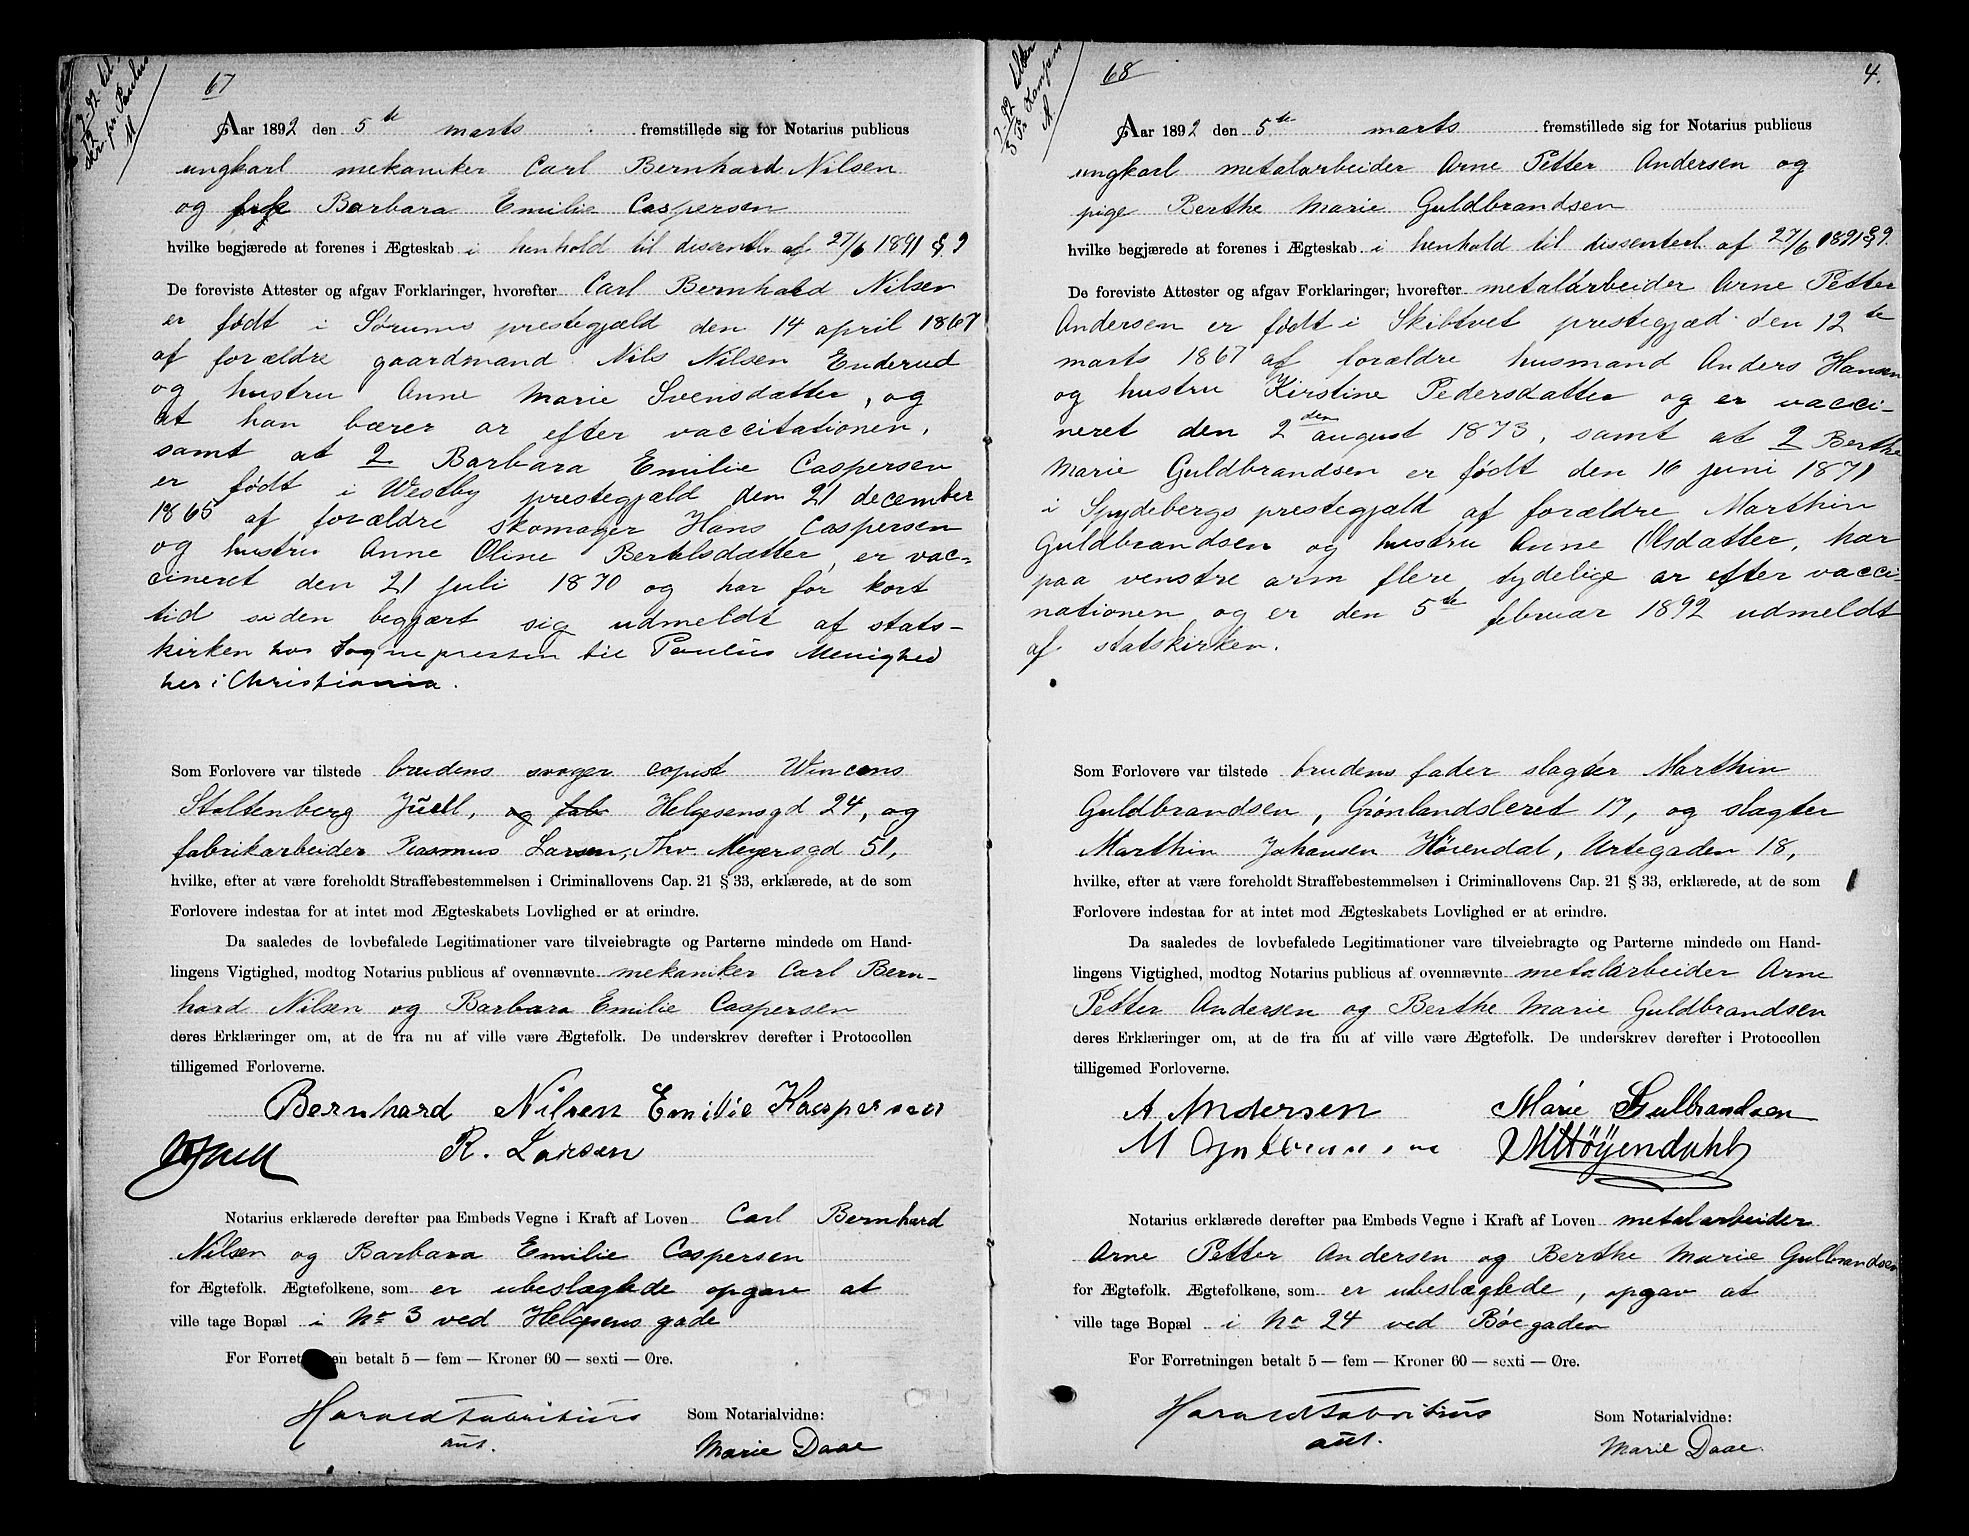 67
Aar 1892 den 5te marts fremstillede sig for Notarius publicus
ungkarl mekaniker Carl Bernhard Nilsen
og Barbara Emilie Caspersen
hvilke begjærede at forenes i Ægteskab i henhold til dissentl. af 27/6 1891 § 9
De foreviste Attester og afgav Forklaringer, hvorefter Carl Bernhard Nilsen
er født i Sørums prestegjæld den 14 april 1867
af forældre gaardmand Nils Nilsen Enderud
og hustru Anne Marie Svensdatter, og
at han bærer ar efter vaccitationen,
samt at 2 Barbara Emilie Caspersen
er født i Westby prestegjæld den 21 december
1865 af forældre skomager Hans Caspersen
og hustru Anne Oline Bertelsdatter, er vac-
cineret den 21 juli 1870 og har for kort
tid siden begjært sig udmeldt af stats-
kirken hos Sognepresten til Paulus Menighed
her i Christiania.
Som Forlovere var tilstede brudens svoger copist Wincens
Stoltenberg Juell, og fab Helgesensgd 24, og
fabrikarbeider Rasmus Larsen, Thv. Meyersgd 51,
hvilke, efter at være foreholdt Straffebestemmelsen i Criminallovens Cap. 21 § 33, erklærede, at de som
Forlovere indestaa for at intet mod Ægteskabets Lovlighed er at erindre.
Da saaledes de lovbefalede Legitimationer vare tilveiebragte og Parterne mindede om Hand-
lingens Vigtighed, modtog Notarius publicus af ovennævnte mekaniker Carl Bern-
hard Nilsen og Barbara Emilie Caspersen
deres Erklæringer om, at de fra nu af ville være Ægtefolk. De underskrev derefter i Protocollen
tilligemed Forloverne.
Bernhard Nilsen Emilie Kaspersen
R. Larsen
Notarius erklærede derefter paa Embeds Vegne i Kraft af Loven Carl Bernhard
Nilsen og Barbara Emilie Caspersen
for Ægtefolk. Ægtefolkene, som er ubeslægtede opgav at
ville tage Bopæl i No 3 ved Helgesens gade
For Forretningen betalt 5 — fem — Kroner 60 — sexti — Øre.
Harald Fabritius
aut.
Som Notarialvidne:
Marie Daae
68
4.
Aar 1892 den 5te marts fremstillede sig for Notarius publicus
ungkarl metalarbeider Arne Petter Andersen og
pige Berthe Marie Guldbrandsen
hvilke begjærede at forenes i Ægteskab i henhold til dissenterl. af 27/6 1891 § 9.
De foreviste Attester og afgav Forklaringer, hvorefter metalarbeider Arne Petter
Andersen er født i Skibtvet prestegjæd den 12te
marts 1867 af forældre husmand Anders Hansen
og hustru Kirstine Pedersdatter og er vacci-
neret den 2den august 1873, samt at 2 Berthe
Marie Guldbrandsen er født den 16 juni 1871
i Spydebergs prestegjæld af forældre Marthin
Guldbrandsen og hustru Anne Olsdatter, har
paa venstre arm flere tydelige ar efter vacci-
nationen og er den 5te februar 1892 udmeldt
af statskirken.
Som Forlovere var tilstede brudens fader slagter Marthin
Guldbrandsen, Grønlandsleret 17, og slagter
Marthin Johansen Høiendal, Urtegaden 18,
hvilke, efter at være foreholdt Straffebestemmelsen i Criminallovens Cap. 21 § 33, erklærede, at de som
Forlovere indestaa for at intet mod Ægteskabets Lovlighed er at erindre.
Da saaledes de lovbefalede Legitimationer vare tilveiebragte og Parterne mindede om Hand-
lingens Vigtighed, modtog Notarius publicus af ovennævnte metalarbeider Arne
Petter Andersen og Berthe Marie Guldbrandsen
deres Erklæringer om, at de fra nu af ville være Ægtefolk. De underskrev derefter i Protocollen
tilligemed Forloverne.
A Andersen Marie Gulbrandsen
M Høyendahl
Notarius erklærede derefter paa Embeds Vegne i Kraft af Loven metalarbeider
Arne Petter Andersen og Berthe Marie Gulbrandsen
for Ægtefolk. Ægtefolkene, som er ubeslægtede, opgav at
ville tage Bopæl i No 24 ved Bøegaden
For Forretningen betalt 5 — fem — Kroner 60 — sexti — Øre.
Harald Fabritius
aut.
Som Notarialvidne:
Marie Daae